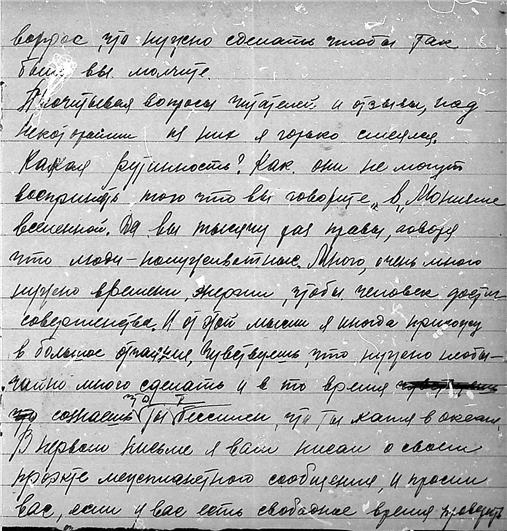 вопрос, что нужно сделать чтобы так
было вы молчите.
Прочитывая вопросы читателей и отзывы, над
некоторыми из них я горько смеялся.
Какая рутинность? Как они не могут
воспринять того что вы говорите „в „Монизме
вселенной. Да вы тысячу раз правы, говоря
что люди-полуживотные. Много, очень много
нужно времени, энергии, чтобы человек достиг
совершенства. И от этой мысли я иногда прихожу
в большое отчаяние, Чувствуешь, что нужно необы-
чайно много сделать и в то время
сознаешь что ты бессилен, что ты капля в океане
В первом письме я вам писал о своем
проекте межпланетного сообщения, и просил
вас, если у вас есть свободное время проверить